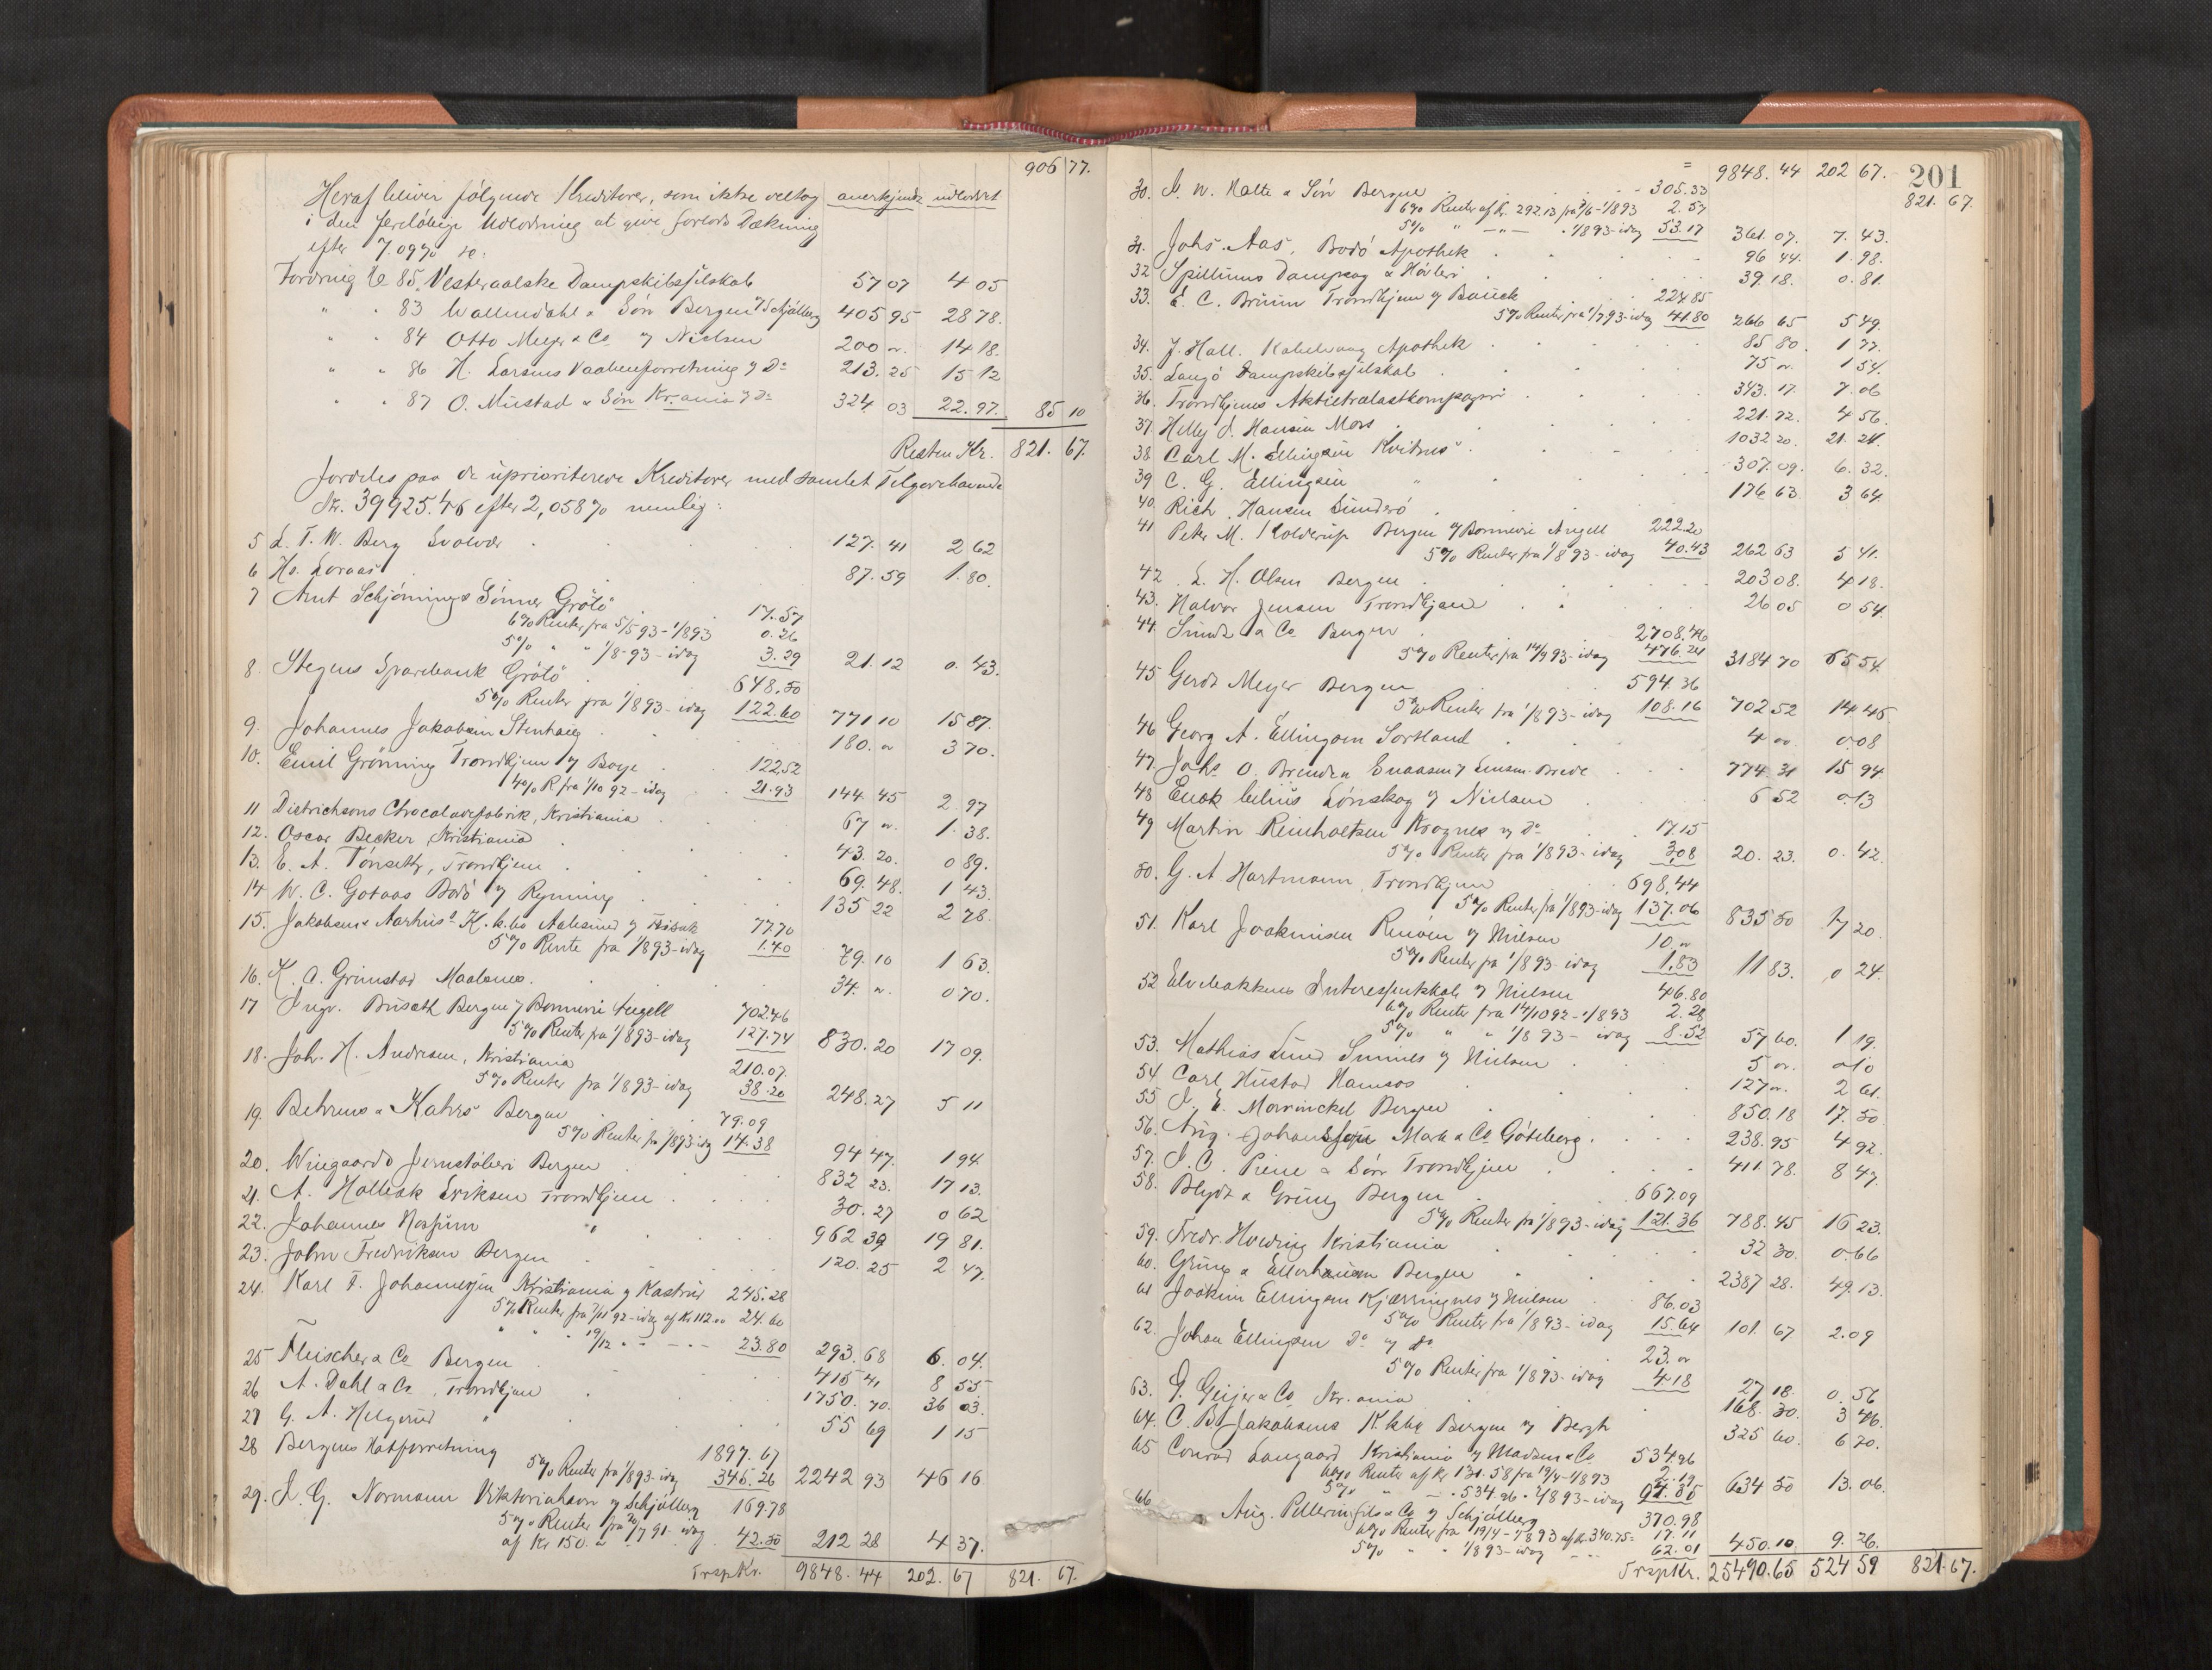 906 77.
Heraf bliver følgende Kreditorer, som ikke deltog anerkjendt udloddet
i den foreløbige Udlodning at give forlods Dækning
efter 7.09%
Fordring No 85. Vesteraalske Dampskibsselskab 57 07 4 05
" " 83 Wallendahl & Søn Bergen v/ Schjølberg 405 95 28 78.
" " 84 Otto Meyer & Co v/ Nielsen 200 " 14 18.
" " 86 H. Larsens Vaabenforretning v/ Do 213. 25 15 12
" " 87 O. Mustad & Søn Kr.ania v/ Do 324 03 22. 97. 85 10
Resten Kr. 821. 67.
fordeles paa de uprioriterede Kreditorer med samlet Tilgodehavende
Kr. 39925.46 efter 2,058% nemlig:
5 L. T. W. Berg Svolvær 127. 41 2 62
6 Ho. Loraas 87. 59 1. 80.
7 Arnt Schjønings Sønner Grøtø 17.57
6% Renter fra 5/5 93 - 1/8 93 0.26
5% " " 1/8 - 93 - idag 3.29 21. 12 0. 43.
8. Stegens Sparebank Grøtø 648.50
5% Renter fra 1/8 93 - idag 122.60 771 10 15 87.
9. Johannes Jakobsen Stenhaug 180. " 3 70.
10. Emil Grønning Trondhjem v/ Boye 122,52
4% R fra 1/10 92 - idag 21.93 144. 45 2. 97
11 Dietrichsons Chocoladefabrik, Kristiania 67 " 1. 38.
12. Oscar Becker, Kristiania 43. 20. 0 89.
13. E. A. Tønseth, Trondhjem 69. 48. 1 43.
14 W. C. Gotaas Bodø v/ Rynning 135 22 2 78.
15. Jakobsens Aarhus K. k. bo Aalesund v/ 77.70
5% Rente fra 1/8 93 - idag 1.40 79. 10 1 63.
16. K. A. Grimstad Maalsnes 34. " 0 70.
17 Ingv. Busath Bergen v/ Bonnevie Angell 702.46
5% Renter fra 1/8 93 - idag 127.74 830. 20 17 09.
18. Joh. H. Andresen, Kristiania 210.07.
5% Renter fra 1/8 93 - idag 38.20 248. 27 5 11
19. Behrens & Kahrs Bergen 79.09
5% Renter fra 1/8 93 - idag 14.38 94 47. 1 94
20. Wingaards Jernstøberi Bergen 832 23. 17 13.
21. A. Holbæk Eriksen Trondhjem 30. 27 0 62
22. Johannes " 962 39 19 81.
23. John Fredriksen Bergen 120. 25 2 47.
24. Karl F. Johannessen Kristiania v/ Kastrud 245.28
5% Renter fra 7/11 92 - idag af Kr 112.00 24.60
" " " 19/12 " " — " — 23.80 293. 68 6. 04.
25 Fleischer & Co Bergen 415 41 8 55
26 A. Dahl & Co, Trondhjem 1750. 70. 36 03.
27 G. A. Helgerud " 55 69 1 15
28 Bergens Hatforretning 1897. 67
5% Renter fra 1/8 93 - idag 345.26 2242 93 46 16
29. J. G. Normann Viktoriahavn v/ Schjølberg 169.78
5% Renter fra 20/7 91 - idag
af Kr 150. " 42.50 212 28 4 37.
Trsp Kr. 9848. 44 202. 67 821. 67.
= 9848. 44 202 67. 201
821. 67.
30. J. W. Holte & Søn Bergen 305.33
6% Renter af Kr. 292.13 fra 7/6 - 1/8 93 2.57
5% " — " — " 1/8 93 - idag 53.17 361. 07. 7. 43.
31. Johs. Aas, Bodø Apothek 96 44. 1. 98.
32 Spillums Dampsag & Høvleri 39. 18. 0. 81.
33. E. C. Bruun Trondhjem v/ Bauck 224 85
5% Renter fra 1/7 93 - idag 41.80 266 65 5 49.
34. J. Hall. Kabelvaag Apothek 85 80. 1 77.
35. Langø Dampskibsselskab 75 " 1 54.
36. Trondhjems Aktietrælastkompagni 343. 17. 7. 06
37. Helly J. Hansen Mors 221. 72. 4 56.
38 Carl M. Ellingsen Kvitnes 1032 20. 21. 24.
39 C. G. Ellingsen " 307. 09. 6. 32.
40. Rich. Hansen Sunderø 176 63. 3 64.
41 Peter M. Kolderup Bergen v/ Bonnevie Angell 222.20
5% Renter fra 1/8 93 - idag 40.43 262 63 5 41.
42. L. H. Olsen Bergen 203 08. 4 18.
43. Halvor Jensen Trondhjem 26 05 0 54.
44. Sundt & Co Bergen 2708.46
5% Renter fra 14/9 93 - idag 476.24 3184 70 65 54.
45 Gerdt Meyer Bergen 594.36
5% Renter fra 1/8 93 - idag 108.16 702 52 14 45
46 Georg A. Ellingsen Sortland 4 " 0.08
47 Johs O. Brendea v/ Lensm. Brede 774. 31 15 94.
48 Enok Lønskog v/ Nielsen 6 52 0.13
49 Martin Reinholtsen Kroqnes v/ Do 17.15
5% Renter fra 1/8 93 - idag 3,08 20. 23. 0. 42.
50. G. A Hartmann, Trondhjem 698,44
5% Renter fra 1/8 93 - idag 137.06 835 50 17 20.
51. Karl Joakimsen v/ Nielsen 10. "
5% Renter fra 1/8 93 - idag 1,83 11 83. 0 24.
52 Elvebakkens Interessentskab v/ Nielsen 46.80
6% Renter fra 14/10 92 - 1/8 93 2.28
5% " " 1/8 93 - idag 8.52 57 60. 1 19.
53. Mathias Lund v/ Nielsen 5 ". 0.10
54 Carl Hustad Namsos 127 ". 2 61.
55 J. E. Mowinckel Bergen 850. 18 17. 50
56. Aug. Johansson Mark & Co Göteborg. 238. 95 4 92.
57. J. C. Piene & Søn Trondhjem 411. 78. 8 47.
58. Blydt & Grung Bergen 667.09
5% Renter fra 1/8 93 - idag 121.36 788. 45 16 23.
59. Fredr. Hveding Kristiania 32 30. 0.66
60. Grung & Ellerhusen Bergen 2387 28. 49. 13.
61 Joakim Ellingsen Kjærringnes v/ Nielsen 86.03
5% Renter fra 1/8 93 - idag 15.64 101. 67 2.09
62. Johan Ellingsen Do v/ Do 23. "
5% Renter fra 1/8 93 - idag 4.18 27 18. 0. 56
63. P. Geijer & Co Kr. ania 168. 30. 3 46.
64. C. B. Jakobsens K. kbo Bergen v/ Bergh 325 60. 6 70.
65 Conrad Langaard Kristiania v/ Madsen & Co 534.96
6% Renter af Kr 131.58 fra 19/4 - 1/8 93 2.19
5% " — " 534.96 " 1/8 93 - idag 97.35 634 50 13. 06.
66 Aug. Pellerin fils & Co v/ Schjølberg 370.98
6% Renter fra 19/4 - 1/8 93 af Kr. 340.75 = 17.11
5% " " 1/8 93 - idag — 62.01 450. 10 9. 26.
Trsp Kr. 25490.65 524 59 821.67.